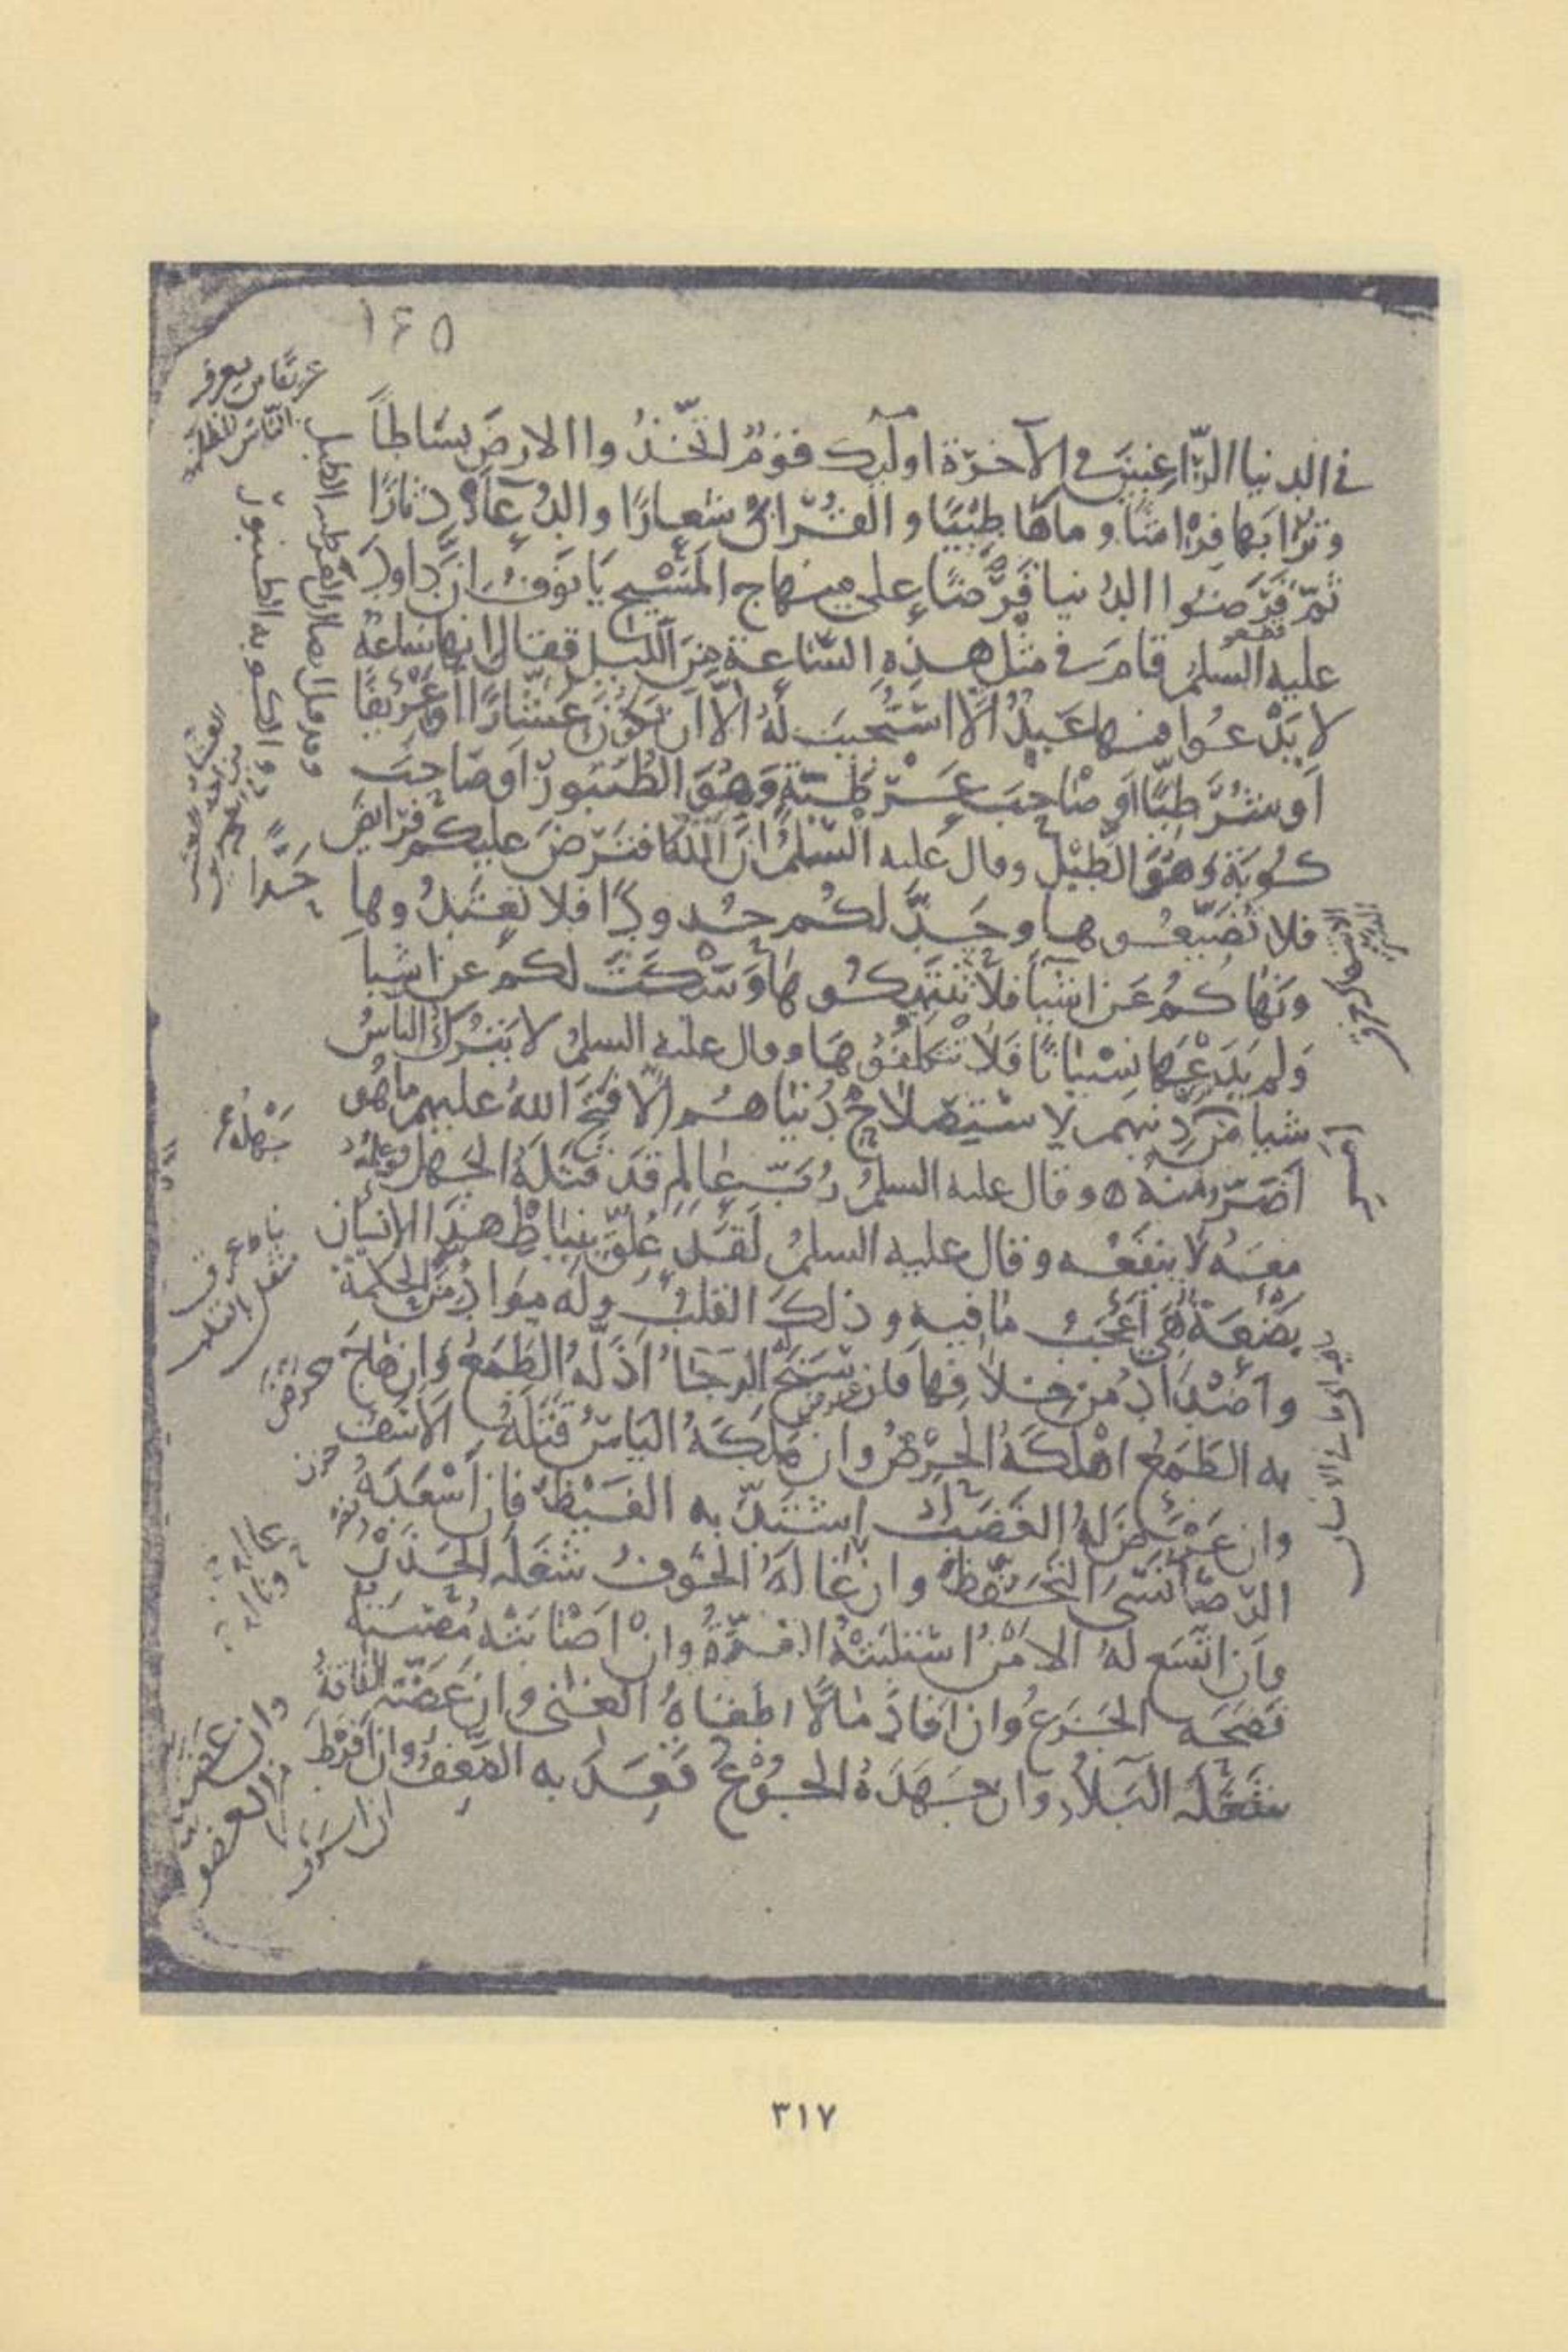 ١٤٥
في الدنيا الرّاغبين في الآخرة اولئك قومٌ اتّخذُوا الارضَ بسَاطاً
وترُابَها فِرَاشًا وماهَا طِيْبًا والقُرْانَ شعارًا والدُعَاءَ دثارًا
ثمّ قَرَضُوا الدُنيا قَرْضًا على منهاج المَسِيْح يَا نوفُ انَّ داودَ
عليه السلمُ قامَ في مثل هذه السَّاعة منَ الليل فقال انها ساعةٌ
لا يَدْعوا فيها عَبدٌ الاّ استُجيبَ لهُ الاّ ان يَكوُنَ عَشّارًا او عَرْيفًا
اَو شُرَطِيًّا او صَاحِبَ عَرْطَبَةٍ وَهْوَ الطُنبُورُ اَو صَاحِبَ
كُوبَةٍ وَهْوَ الطَّبْلُ وقال عليه السّلمُ انَّ اللهَ افتَرضَ عليكم فرَايضَ
فلا تُضَيّعُوها وحَدَّ لكُم حُدودًا فلا تعتَدُوها
ونَهاكُم عَن اشيآءَ فلا تنتَهِكُوها وَسَكَتَ لكم عن اشيآ
وَلم يَدَعْهَا نسْيانًا فَلا تتكلّفُوهَا وقال عليه السلمُ لا يَترُك الناسُ
شيا من دِينِهم لاستِصْلاحِ دُنْيَاهُم الاّ فتَحَ اللهُ عليهم ما هُو
اَضَرّ منهُ ه وقال عليه السلمُ رُبّ عالِمٍ قدَ قتَلَهُ الجَهلُ وعِلمُهُ
معَهُ لا ينفَعُه وقال عليه السلمُ لقَد عُلِّقَ بنِيَاطِ هذَا الانسانِ
بَضْعَةٌ هِيَ اَعْجَبُ ما فيه وذلكَ القلبُ وله موَادُّ مِنَ الحكمةِ
واَضْدَادٌ من خلافِها فان سَنَحَ لَهُ الرجَاءُ اَذَلَّهُ الطَمَعُ وَان هاجَ
به الطَمَعُ اهْلكَهُ الحِرْصُ وان مَلَكَهُ اليَاسُ قتَلَهُ الاَسَفُ
وان عَرَضَ لهُ الغَضَبُ اشتَدّ به الغَيْظُ فان اَسْعَدَهُ
الرّضَا نَسِىَ التَحَفّظَ وان غالَهُ الخَوفُ شغَلَهُ الحَذَرُ
وَان اتّسَع لهُ الامْنُ استلبَتْهُ الغِرَّةُ وانْ اَصَابَتْهُ مُصيبَةٌ
فَضَحَه الجَزَعُ وان افَادَ مَالاً اطغَاهُ الغِنَى وان عَضّتهُ الفاقةُ
شغَلَهُ البَلاءُ وان جَهَدَهُ الجُوْعُ قعَدَ به الضَعفُ وان اَفرَطَ
جدًّا
حزن
٣١٧